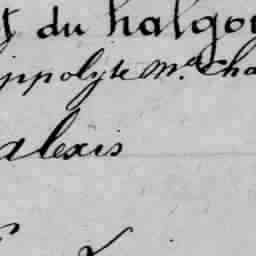 du halgou
ippolyte Md Cha
alexis